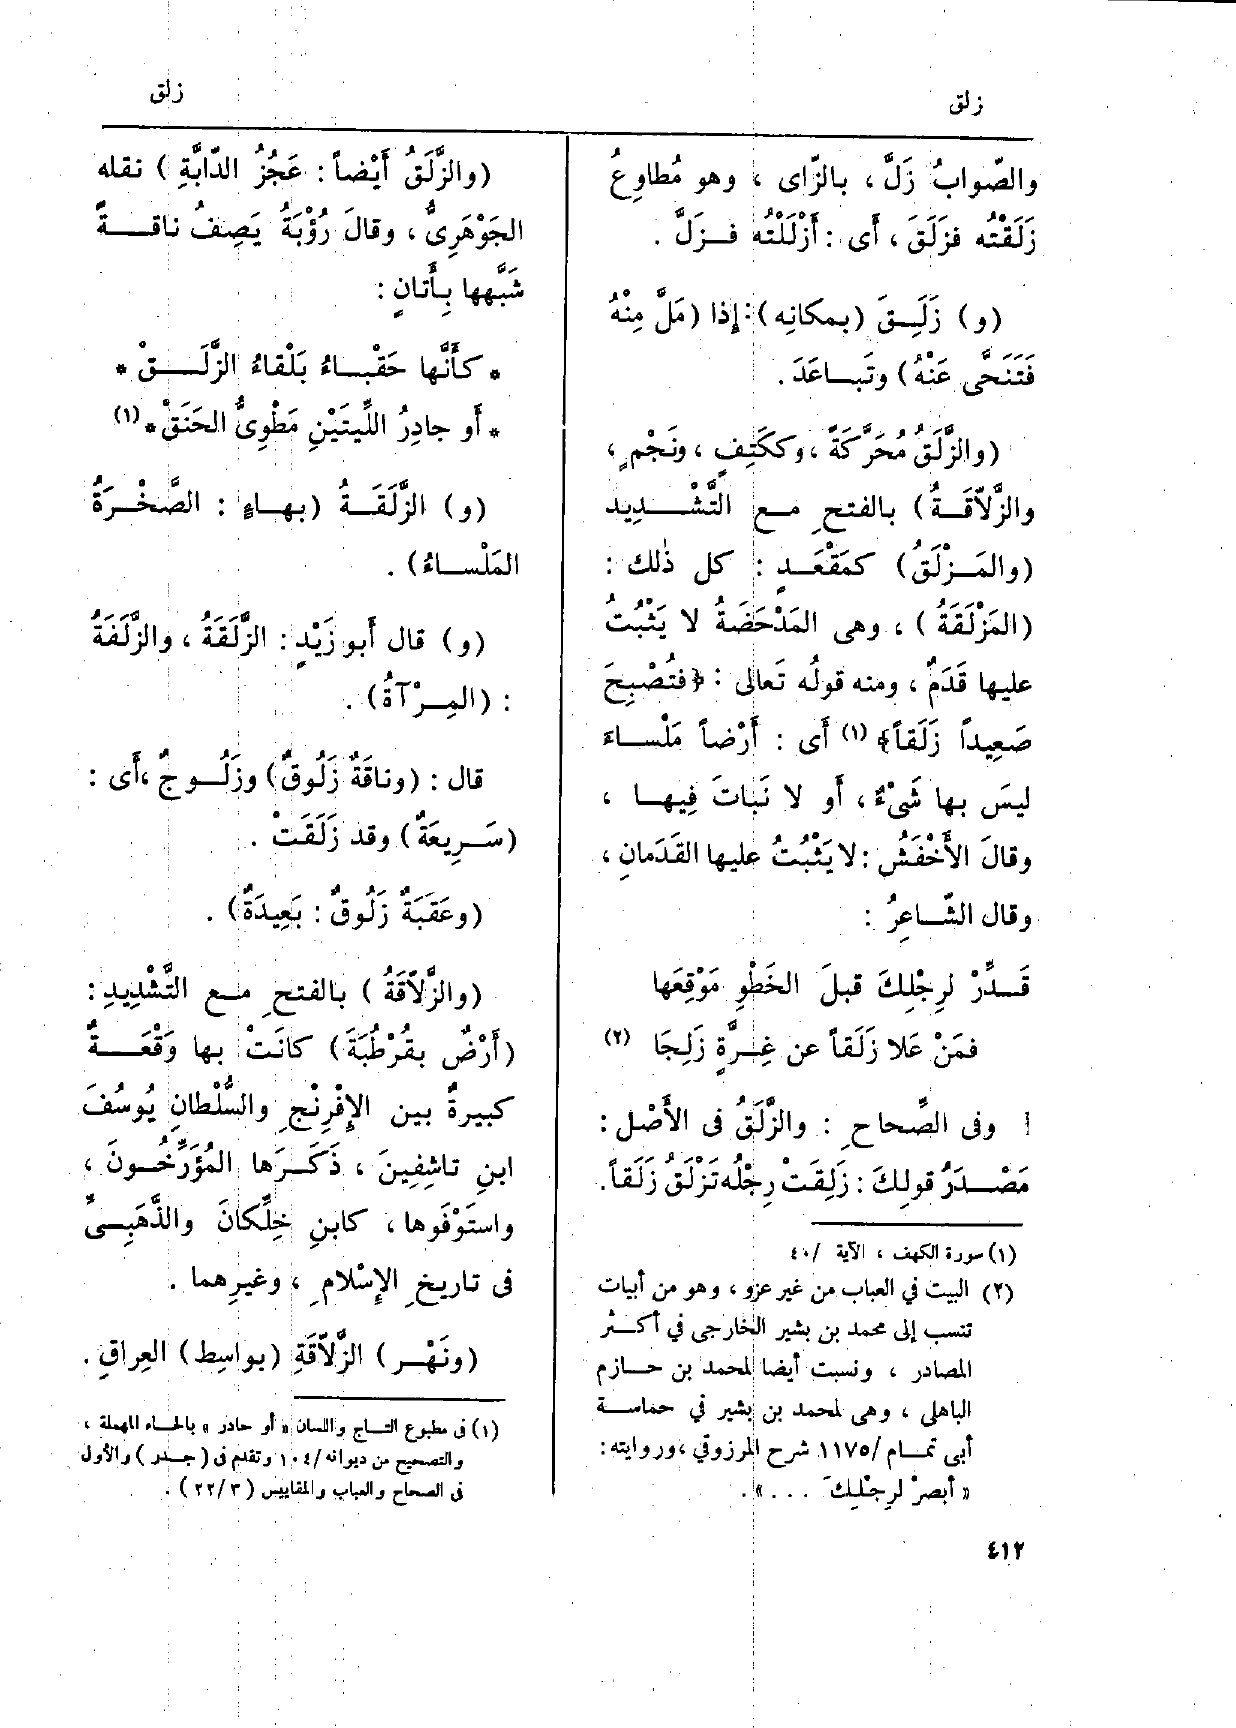 زلق
زلق
والصّوابُ زَلَّ ، بالزّاى ، وهو مُطاوِعُ
زَلَقْتُه فزَلَقَ ، أى : أزْلَلْتُه فـزلَّ .
(و) زَلَـِـقَ (بمكانِه) : إذا (مَلَّ مِنْهُ
فَتَنَحَّى عَنْهُ) وتَبـاعَدَ .
(والزَّلَقُ مُحَرَّكَةً ، وككَتِفٍ ، ونَجْمٍ ،
والزَّلّاقَــةُ) بالفتحِ مـع التَّشْـديد
(والمَـزْلَقُ) كمَقْعَـدٍ : كل ذٰلك :
(المَزْلَقَةُ ) ، وهى المَدْحَضَةُ لا يَثْبُتُ
عليها قَدَمٌ ، ومنه قولُه تَعالى : ﴿فتُصْبِحَ
صَعِيداً زَلَقاً﴾ (١) أى : أَرْضاً مَلْسـاءَ
ليسَ بها شَىْءٌ ، أو لا نَباتَ فِيهـا ،
وقالَ الأَخْفَشُ : لا يَثْبُتُ عليها القَدَمانِ ،
وقال الشّـاعِرُ :
قَـدِّرْ لرِجْلِكَ قبلَ الخَطْوِ مَوْقِعَها
فمَنْ عَلا زَلَقاً عن غِـرَّةٍ زَلِجَا (٢)
وفى الصِّحاحِ : والزَّلَقُ فى الأَصْل :
مَصْـدَرُ قولِكَ : زَلِقَتْ رِجْلُه تَزْلَقُ زَلَقاً .
(١) سورة الكهف ، الآية /٤٠
(٢) البيت في العباب من غير عزو ، وهو من أبيات
تنسب إلى محمد بن بشير الخارجى في أكـثر
المصادر ، ونسبت أيضا لمحمد بن حـازم
الباهلى ، وهى لمحمد بن بشير في حماسـة
أبى تمـام /١١٧٥ شرح المرزوقي ، وروايته :
« أبصرْ لرِجْلِكَ . . . » .
٤١٢
(والزَّلَقُ أَيْضاً : عَجُزُ الدّابَّةِ ) نقله
الجَوْهَرِىُّ ، وقالَ رُؤْبَةُ يَصِفُ ناقـةً
شَبَّهها بِأَتانٍ :
* كأَنَّها حَقْبـاءُ بَلْقاءُ الزَّلَـقْ *
* أو جادِرُ اللِّيتَيْنِ مَطْوِىُّ الحَنَقْ * (١)
(و) الزَّلَقَـةُ (بهـاءٍ : الصَّخْـرَةُ
المَلْسـاءُ) .
(و) قال أبو زَيْدٍ : الزَّلَقَةُ ، والزَّلَفَةُ
: (المِـرْآةُ) .
قال : (وناقَةٌ زَلُوقٌ) وزَلُـوجٌ ، أى :
(سَـرِيعَةٌ) وقد زَلَقَتْ .
(وعَقَبَةٌ زَلُوقٌ : بَعِيدَةٌ) .
(والزَّلّاقَةُ ) بالفتحِ مـع التَّشْدِيدِ :
(أَرْضٌ بقُرْطُبَةَ) كانَتْ بها وَقْعَـةٌ
كبيرةٌ بين الإِفْرِنْجِ والسُّلْطانِ يُوسُفَ
ابنِ تاشِفِينَ ، ذَكَـرَها المُؤَرِّخُـونَ ،
واستَوْفَوها ، كابنِ خِلِّكانَ والذَّهَبِـىِّ
فى تاريخِ الإِسْلامِ ، وغيرِهما .
(ونَهْـر) الزَّلّاقَةِ (بواسِط) العِراقِ .
(١) فى مطبوع التـاج واللسان « أو حادر » بالحـاء المهملة ،
والتصحيح من ديوانه /١٠٤ وتقدم فى ( جـدر ) والأول
فى الصحاح والعباب والمقاييس ( ٢٢/٣ ) .